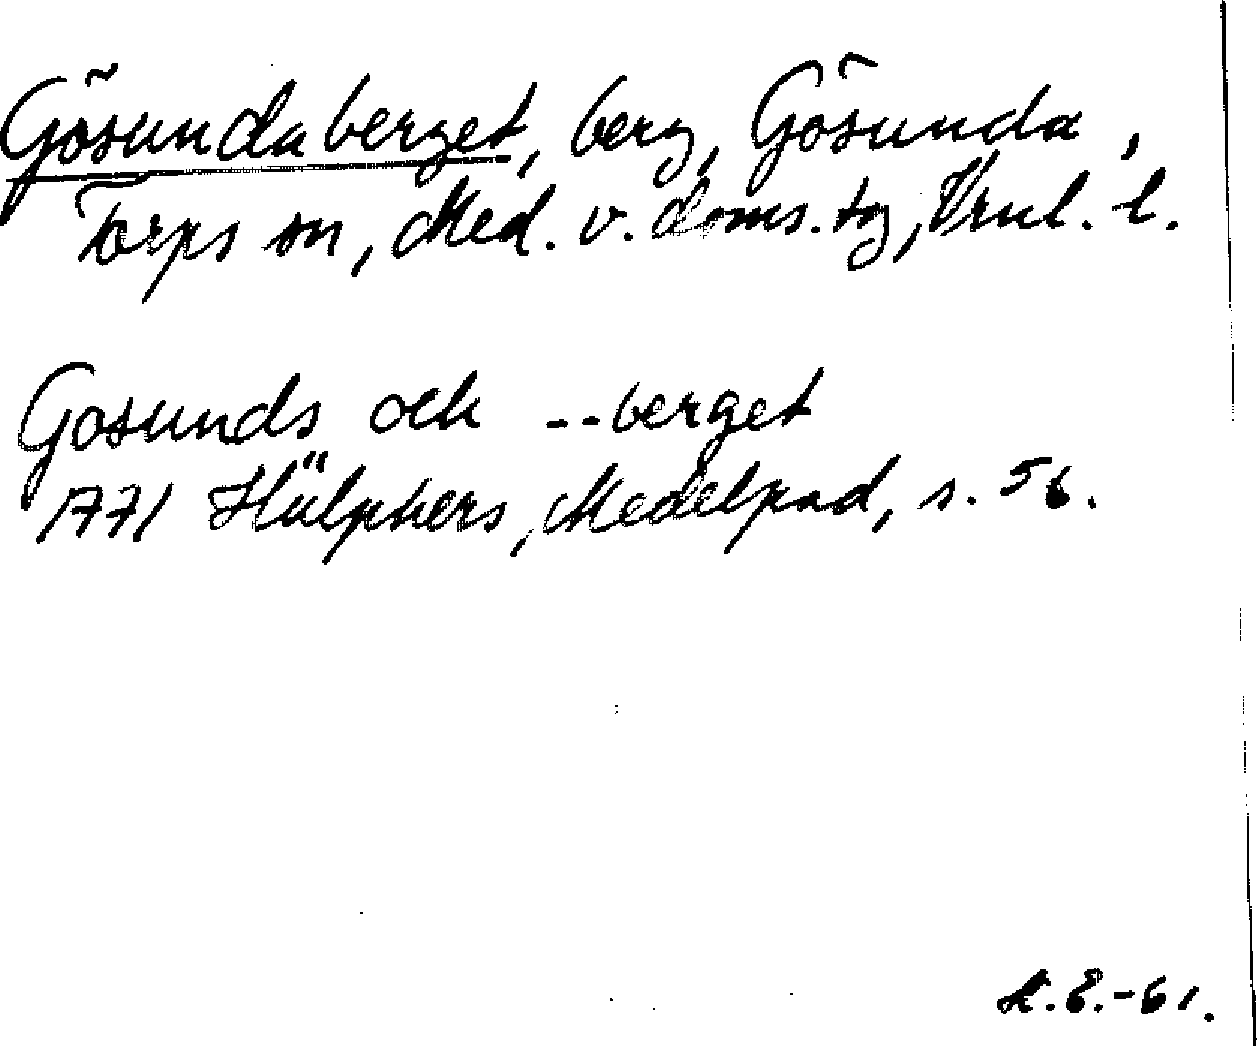 Gösundaberget, berg, Gösunda,
Torps sn, Med. v. doms. tg, Vrnl. l.
Gosunds och --berget
1771 Hülphers, Medelpad, s. 56.
K.E.-61.